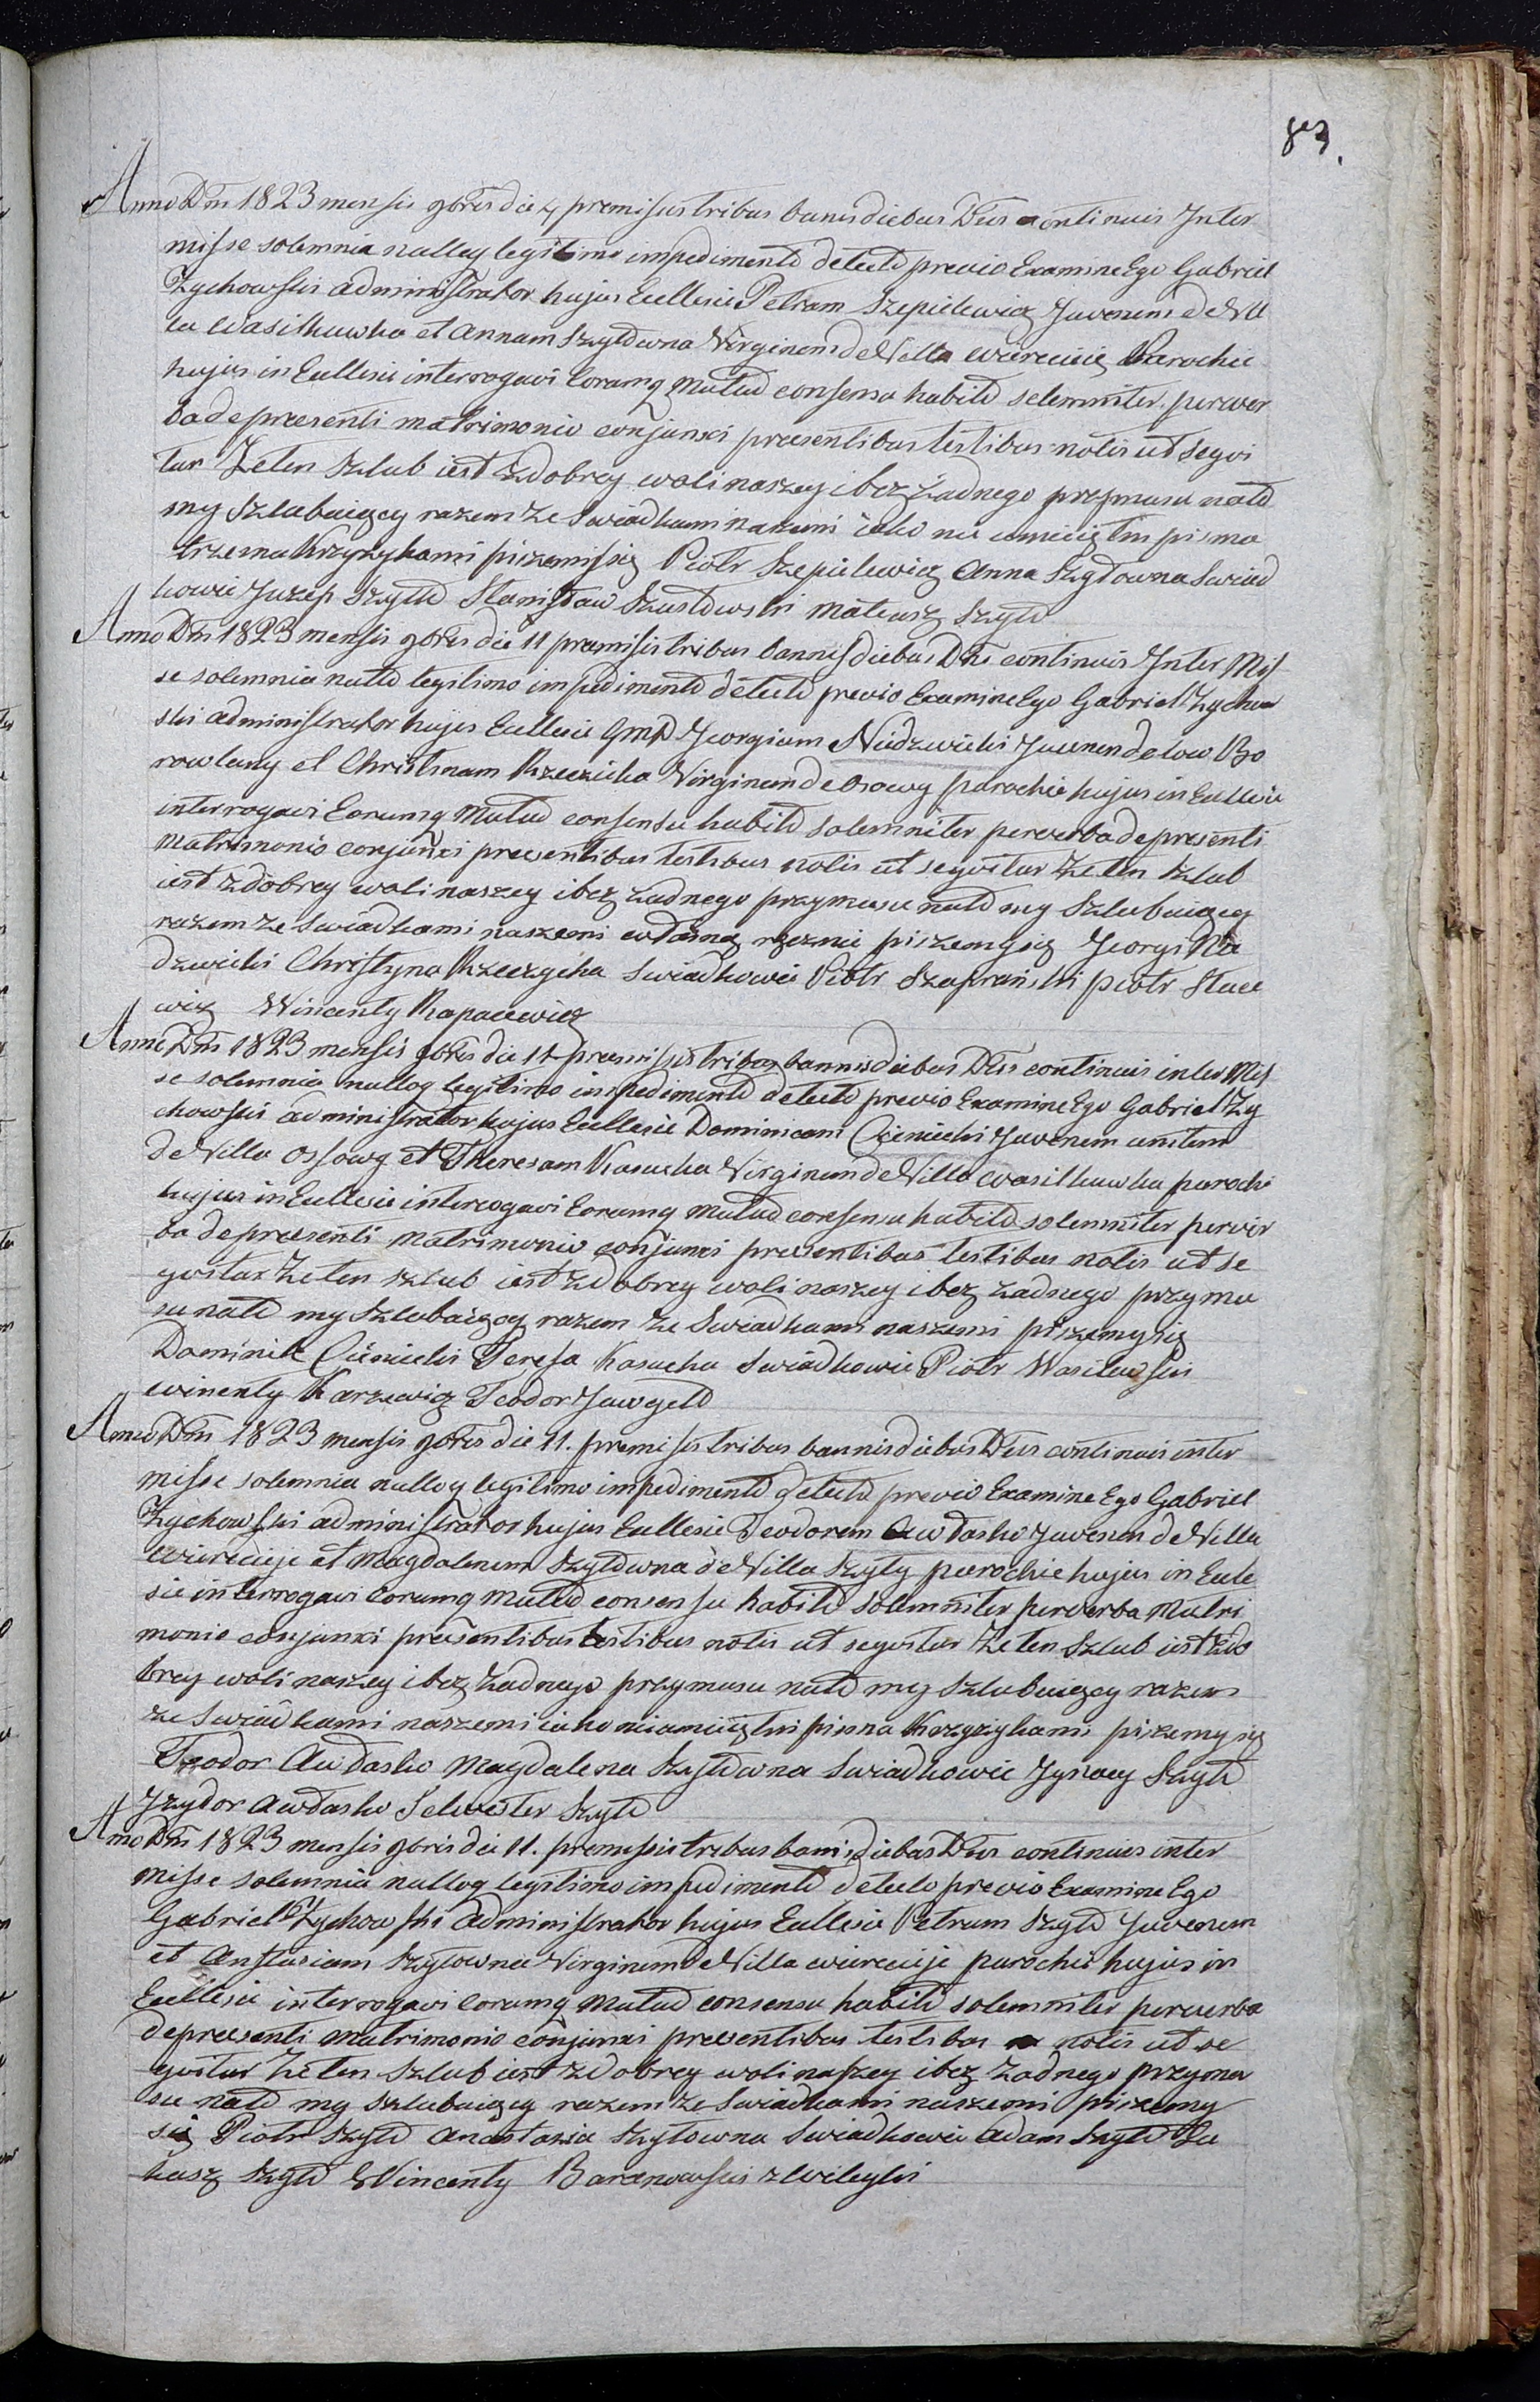 83.
Anno Dni 1823 mensis 9bris die 4 premissis tribus banis diebus Dnis continuis Inter
misse solemnia nulloq legitimo impedimento detecto previo Examine Ego Gabriel
Zychowski administrator hujus Ecclesie Petram Szepielewicz Juvenem de Vil
la Wasilkuwka et Annam Szyłowna Virginem de Villa wiereciie Parochie
hujus in Ecclesie interrogavi Eorumq Mutuo consensu habito solemniter perver
ba de preesenti matrimonio conjunxi preesentibus testibus notis ut segvi
tur Ze ten Szlub iest z dobrey woli naszey i bez żadnego przymusu nato
my Szlubuiącey razem ze Swiadkami naszemi iako nie umieiętni pisma
trzema krzyżykami piszemy się Piotr Szepielewicz Anna Szyłowna Swiad
kowie Juzep Szyło Stanisław Szustowski Mateusz Szyło
Anno Dni 1823 mensis 9bris die 11 premissis tribus bannis diebus Dnis continuis Inter Mis
se solemnia nullo legitimo impedimento detecto previo Examine Ego Gabriel Zychow
ski administrator hujus Ecclesie GMD Jeorgium Niedzwiecki Juvenem de low Bo
rowlany et Christinam Rzeczicka Virginem de Osowy parochie hujus in Ecclesie
interrogavi Eorumq Mutuo consensu habito solemniter per verba de presenti
Matrimonio conjunxi preesentibus testibus notis ut segvitur Ze ten Szlub
iest z dobrey woli naszey i bez żadnego przymusu nato my Szlubuiącey
razem ze Swiadkami naszemi własną ręcznie piszemy się Jeorgi Nie
dzwiecki Christyna Rzeczycka Swiadkowie Piotr Szafranski piotr Stace
wicz Wincenty Rapacewicz
Anno Dni 1823 mensis 9bris die 11 premissis tribus bannis diebus Dnis continuis inter Mis
se solemnia nulloq legitimo impedimento detecto previo Examine Ego Gabriel Zy
chowski administrator hujus Ecclesie Dominicum Cieniecki Juvenem
de Villa Ossowy et Theresam Kasucka Virginem de Villa Wasilkuwka parochi
hujus in Ecclesie interrogavi Eorumq mutuo consensu habito solemniter per ver
ba de preesenti Matrimonio conjunxi preesentibus testibus notis ut se
gvitur Ze ten szlub iest z dobrey woli naszey i bez żadnego przymu
su nato my Szlubuiącey razem ze Swiadkami naszemi piszemy się
Dominik Cieniecki Teresa Kasucka Swiadkowie Piotr Wasilewski
winenty Karzewicz Teodor Jawgeło
Anno Dni 1823 mensis 9bris die 11. premissis tribus bannis diebus Dnis continuis inter
misse solemnia nulloq legitimo impedimento detecto previo Examine Ego Gabriel
Zychowski administrator hujus Ecclesie Teodorem Awłasko Juvenem de Villa
wiereciije et Magdalenam Szyłowna de Villa Szyły parochie hujus in Eccle
sie interrogavi Eorumq mutuo consensu habito solemniter per verba Matri
monio conjunxi presentibus testibus notis ut segvitur Ze ten Szlub iest z do
brey woli naszey i bez żadnego przymusu nato my Szlubuiącey razem
ze Swiadkami naszemi iako nieumieiętni pisma Krzyżykami piszemy się
Teodor Awłasko Magdalena Szyłowna Swiadkowie Jgnacy Szyło
Jzydor Awłasko Selwester Szyło
Anno Dni 1823 mensis 9bris die 11. premissis tribus banis diebus Dnis continuis inter
Misse solemnia nulloq legitimo impedimento detecto previo Examine Ego
Gabriel Zychowski Administrator hujus Ecclesie Petrum Szyło Juvenem
et Anstasiam Szyłowna Virginem de Villa wiereciije parochie hujus in
Ecclesie interrogavi Eorumq Mutuo consensu habito solemniter per verba
de preesenti Matrimonio conjunxi preesentibus testibus notis ut se
gvitur Ze ten Szlub iest z dobrey woli naszey i bez żadnego przymu
su nato my szlubuiącey razem ze Swiadkami naszemi piszemy
się Piotr Szyło Anastazia Szyłowna Swiadkowie Adam Szyło Łu
kasz Szyło Wincenty Baranowski z wileyki